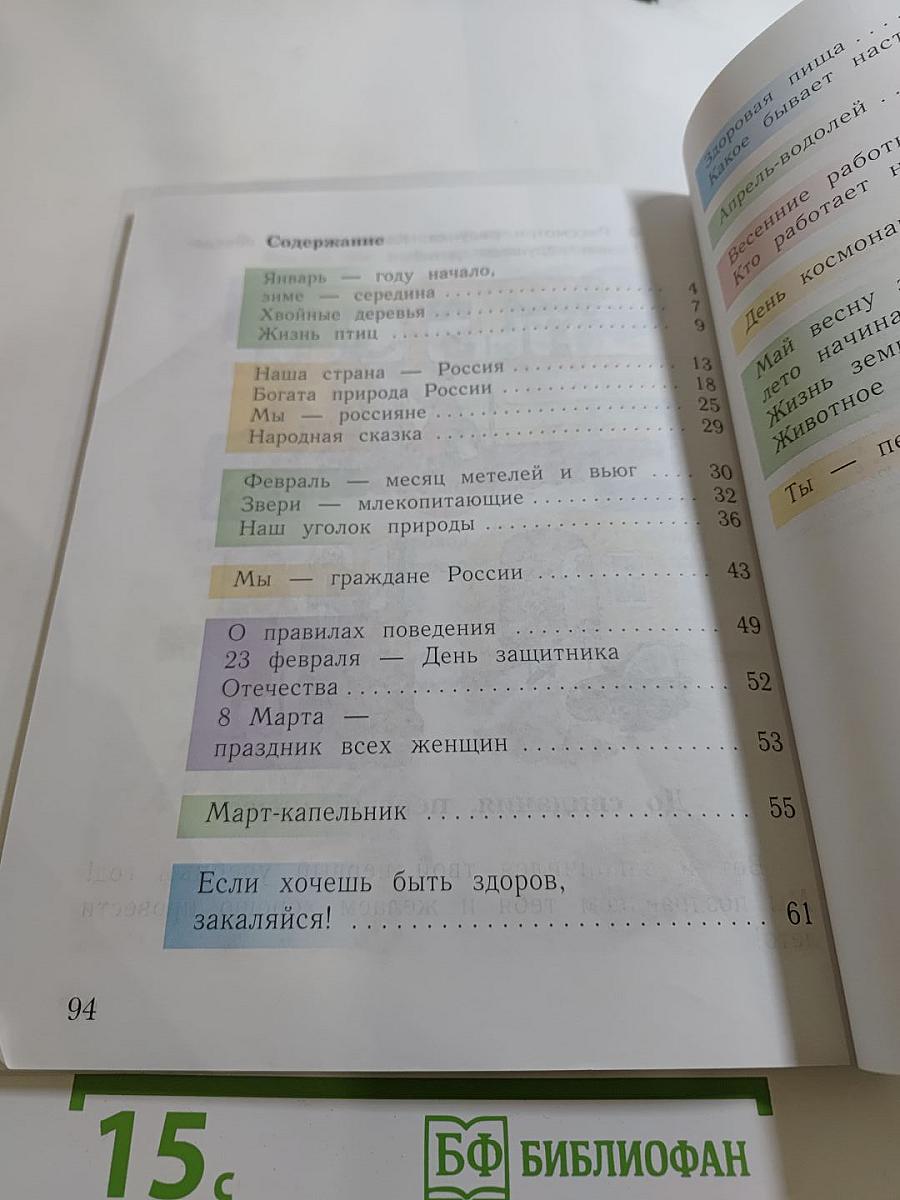 Содержание
Январь — году начало,
зиме — середина .......................... 4
Хвойные деревья .......................... 7
Жизнь птиц .......................... 9
Наша страна — Россия .................. 13
Богата природа России .................. 18
Мы — россияне .......................... 25
Народная сказка .......................... 29
Февраль — месяц метелей и вьюг .... 30
Звери — млекопитающие ................ 32
Наш уголок природы .................... 36
Мы — граждане России ................ 43
О правилах поведения .................. 49
23 февраля — День защитника
Отечества .............................. 52
8 Марта —
праздник всех женщин .................. 53
Март-капельник .......................... 55
Если хочешь быть здоров,
закаляйся! .............................. 61
94
Здоровая пища ....
Какое бывает
Апрель-водолей ..
Весенние
Кто работает
День
Май весну
лето
Жизнь
Животное
Ты —
15 с
БФ БИБЛИОФАН